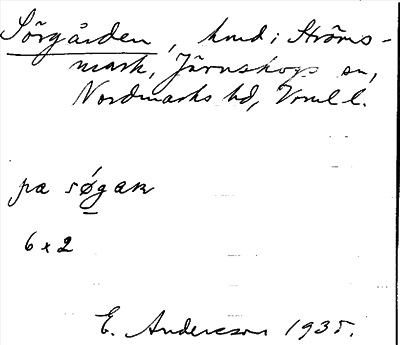 Sörgården, hmd i Ströms-
mark, Järnskogs sn,
Nordmarks hd, Vrml l.
pa søgaɴ
6 x 2
E. Anderson 1935.